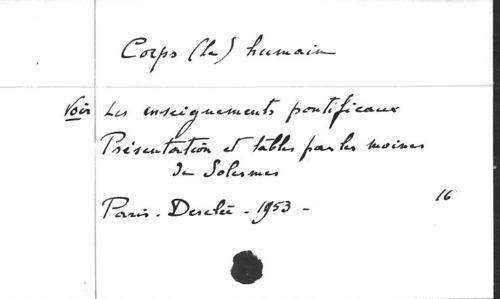 Corps (le) humain
Voir Les enseignements pontificaux
Présentation et tables par les moines
de Solesmes
Paris. Desclée - 1953 -
16